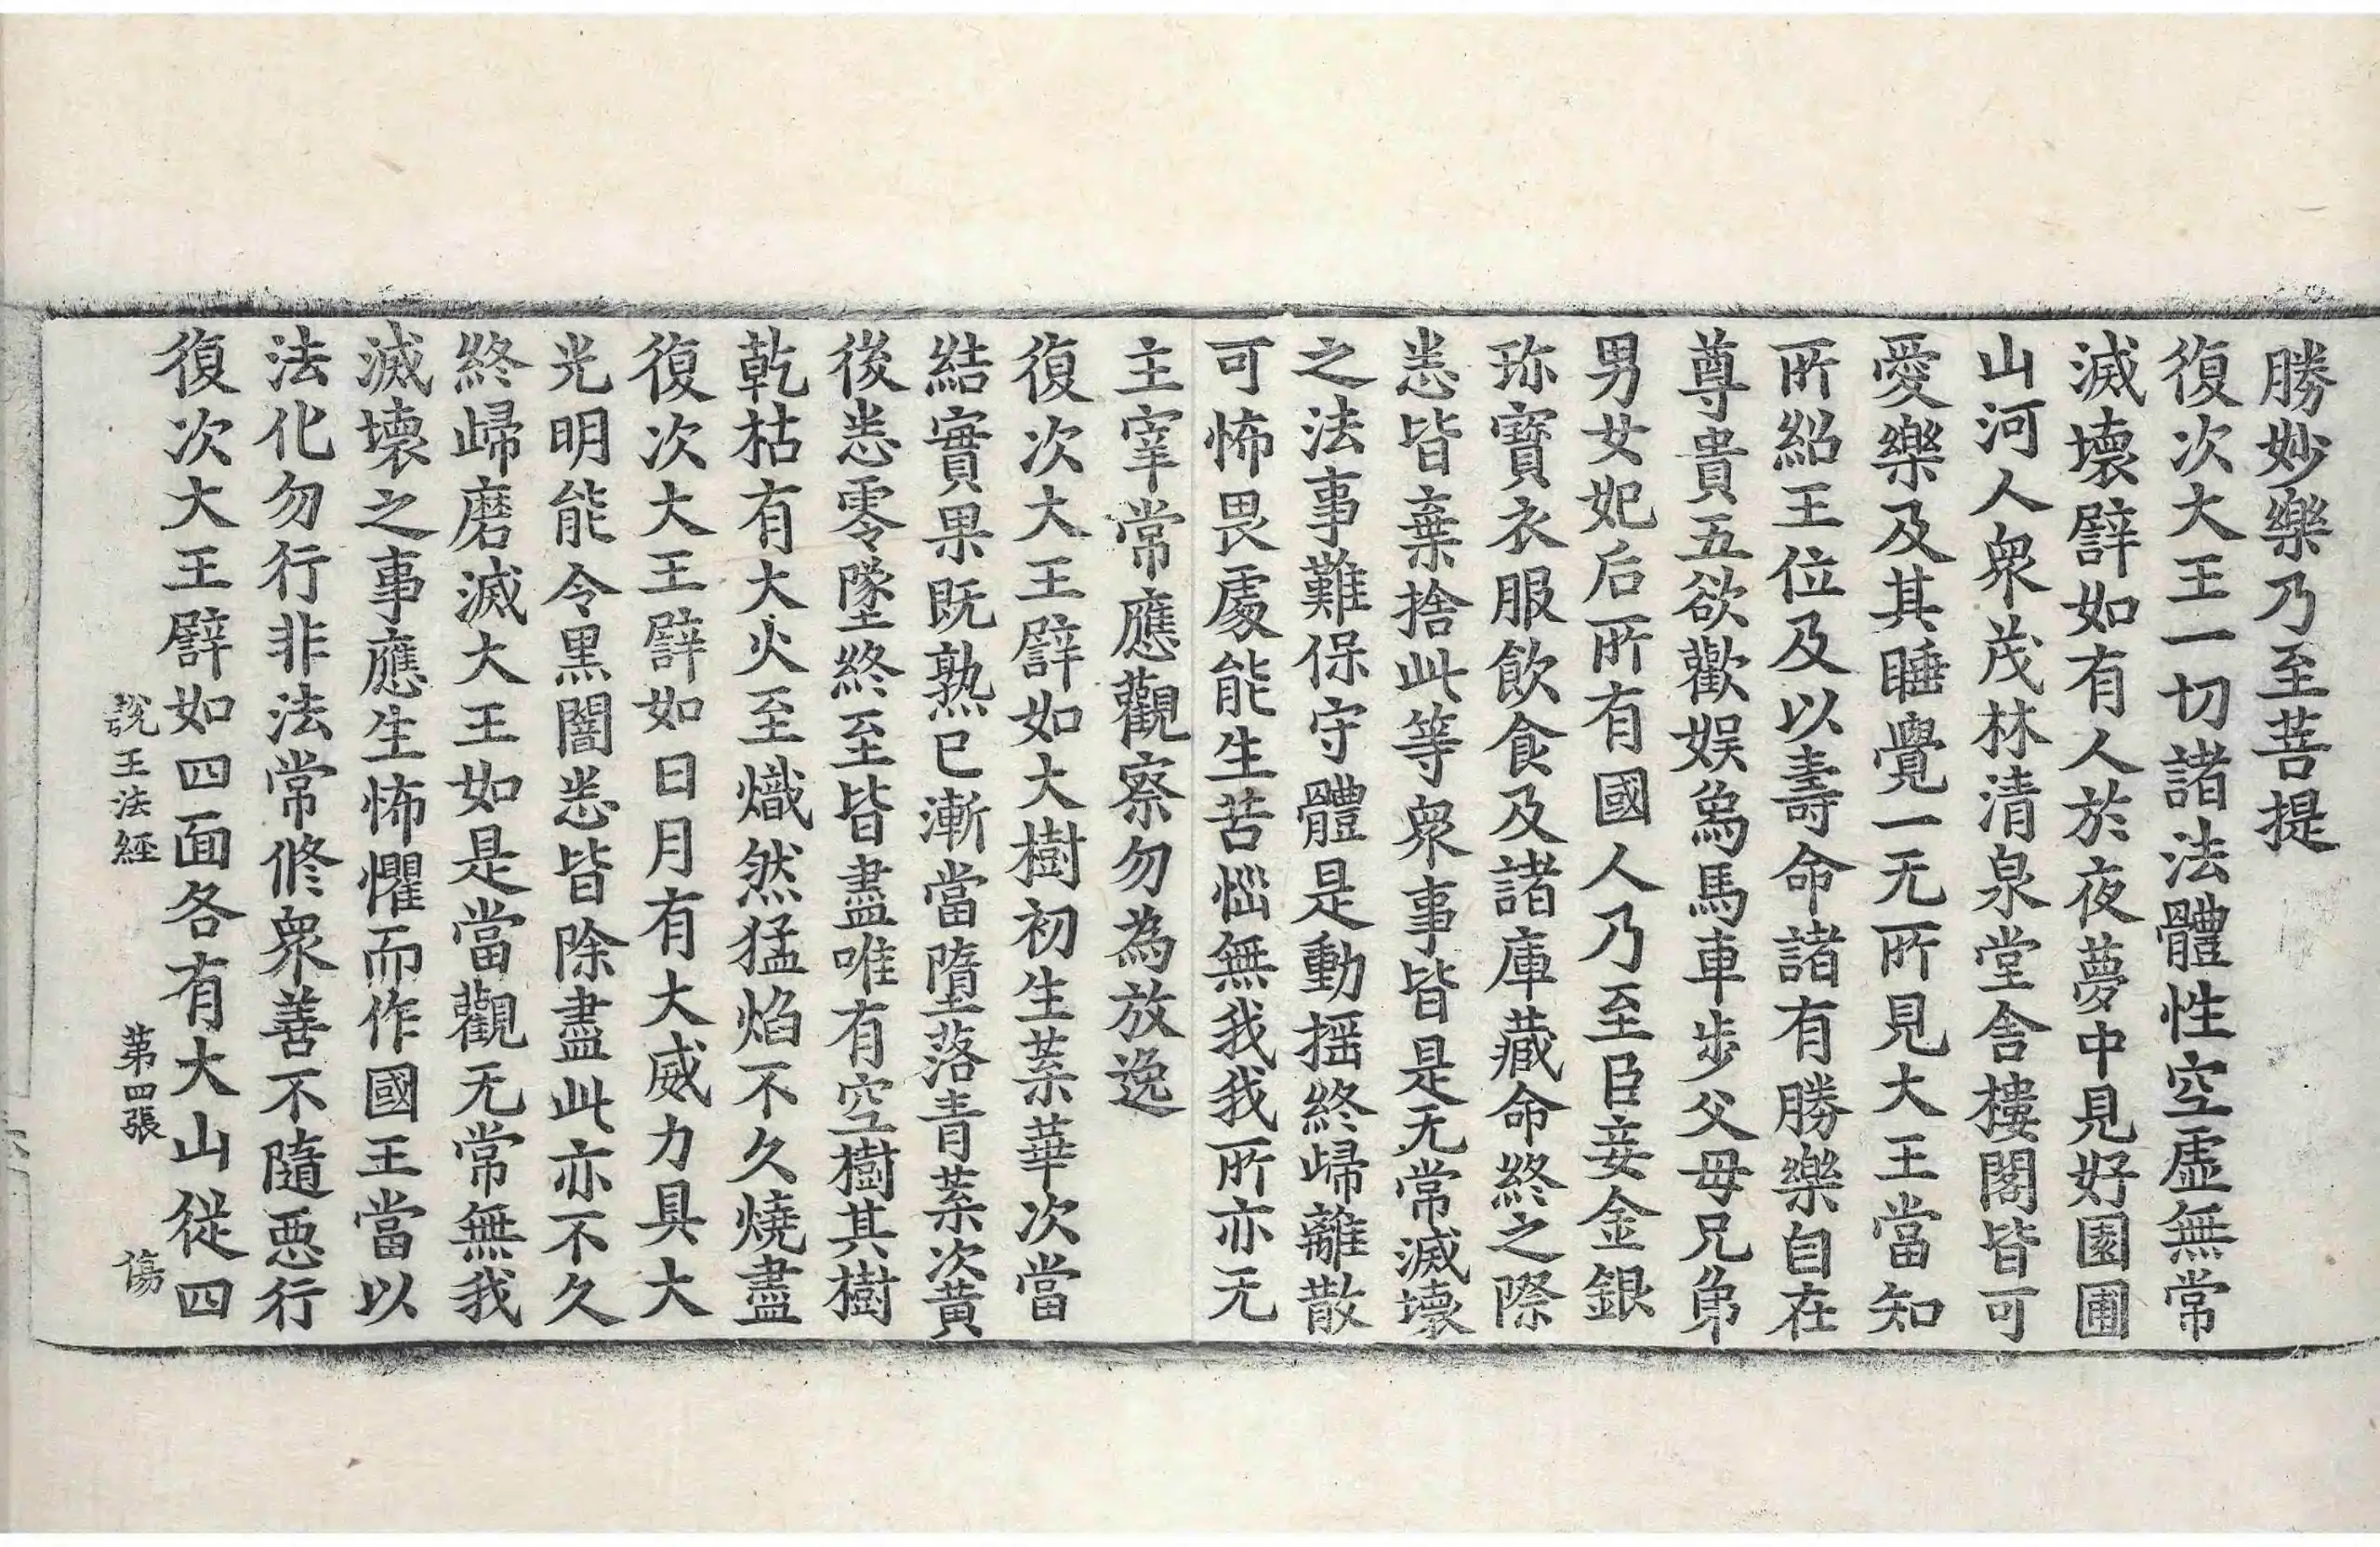 勝妙樂乃至菩提
復次大王一切諸法體性空虛無常
滅壞譬如有人於夜夢中見好園圃
山河人衆茂林清泉堂舍樓閣皆可
愛樂及其睡覺一无所見大王當知
所紹王位及以壽命諸有勝樂自在
尊貴五欲歡娛鳥馬車步父母兄弟
男女妃后所有國人乃至臣妾金銀
珎寶衣服飲食及諸庫藏命終之際
悉皆棄捨此等衆事皆是无常滅壞
之法事難保守體是動揺終歸離散
可怖畏處能生苦惱無我我所亦无
主宰常應觀察勿為放逸
復次大王譬如大樹初生葉華次當
結實果既熟已漸當墮落青葉次黃
後悉零墜終至皆盡唯有空樹其樹
乾枯有大火至熾然猛焰不久燒盡
復次大王譬如日月有大威力具大
光明能令黑闇悉皆除盡此亦不久
終歸磨滅大王如是當觀无常無我
滅壞之事應生怖懼而作國王當以
法化勿行非法常修衆善不隨惡行
復次大王譬如四面各有大山從四
說王法經 第四張 傷